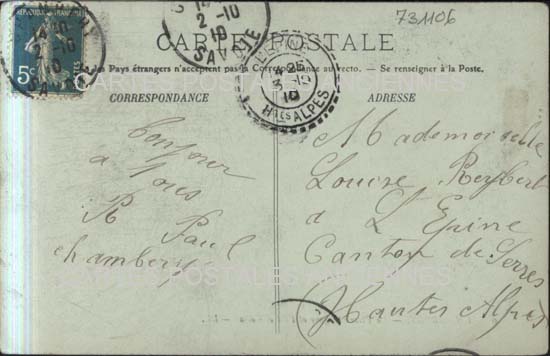 731106
14-10
2-10
10
SAVOIE
14
2-10
10
SAVOIE
5c
CARTE POSTALE
Les Pays étrangers n'acceptent pas la Correspondance au recto. — Se renseigner à la Poste.
4 25
3-10
10
Htes ALPES
CORRESPONDANCE
Bonjour
a tous
R Paul
chambery
ADRESSE
Mademoiselle
Louise Reybert
a L'Epine
Canton de Serres
(Hautes Alpes)
CARTES POSTALES ANCIENNES